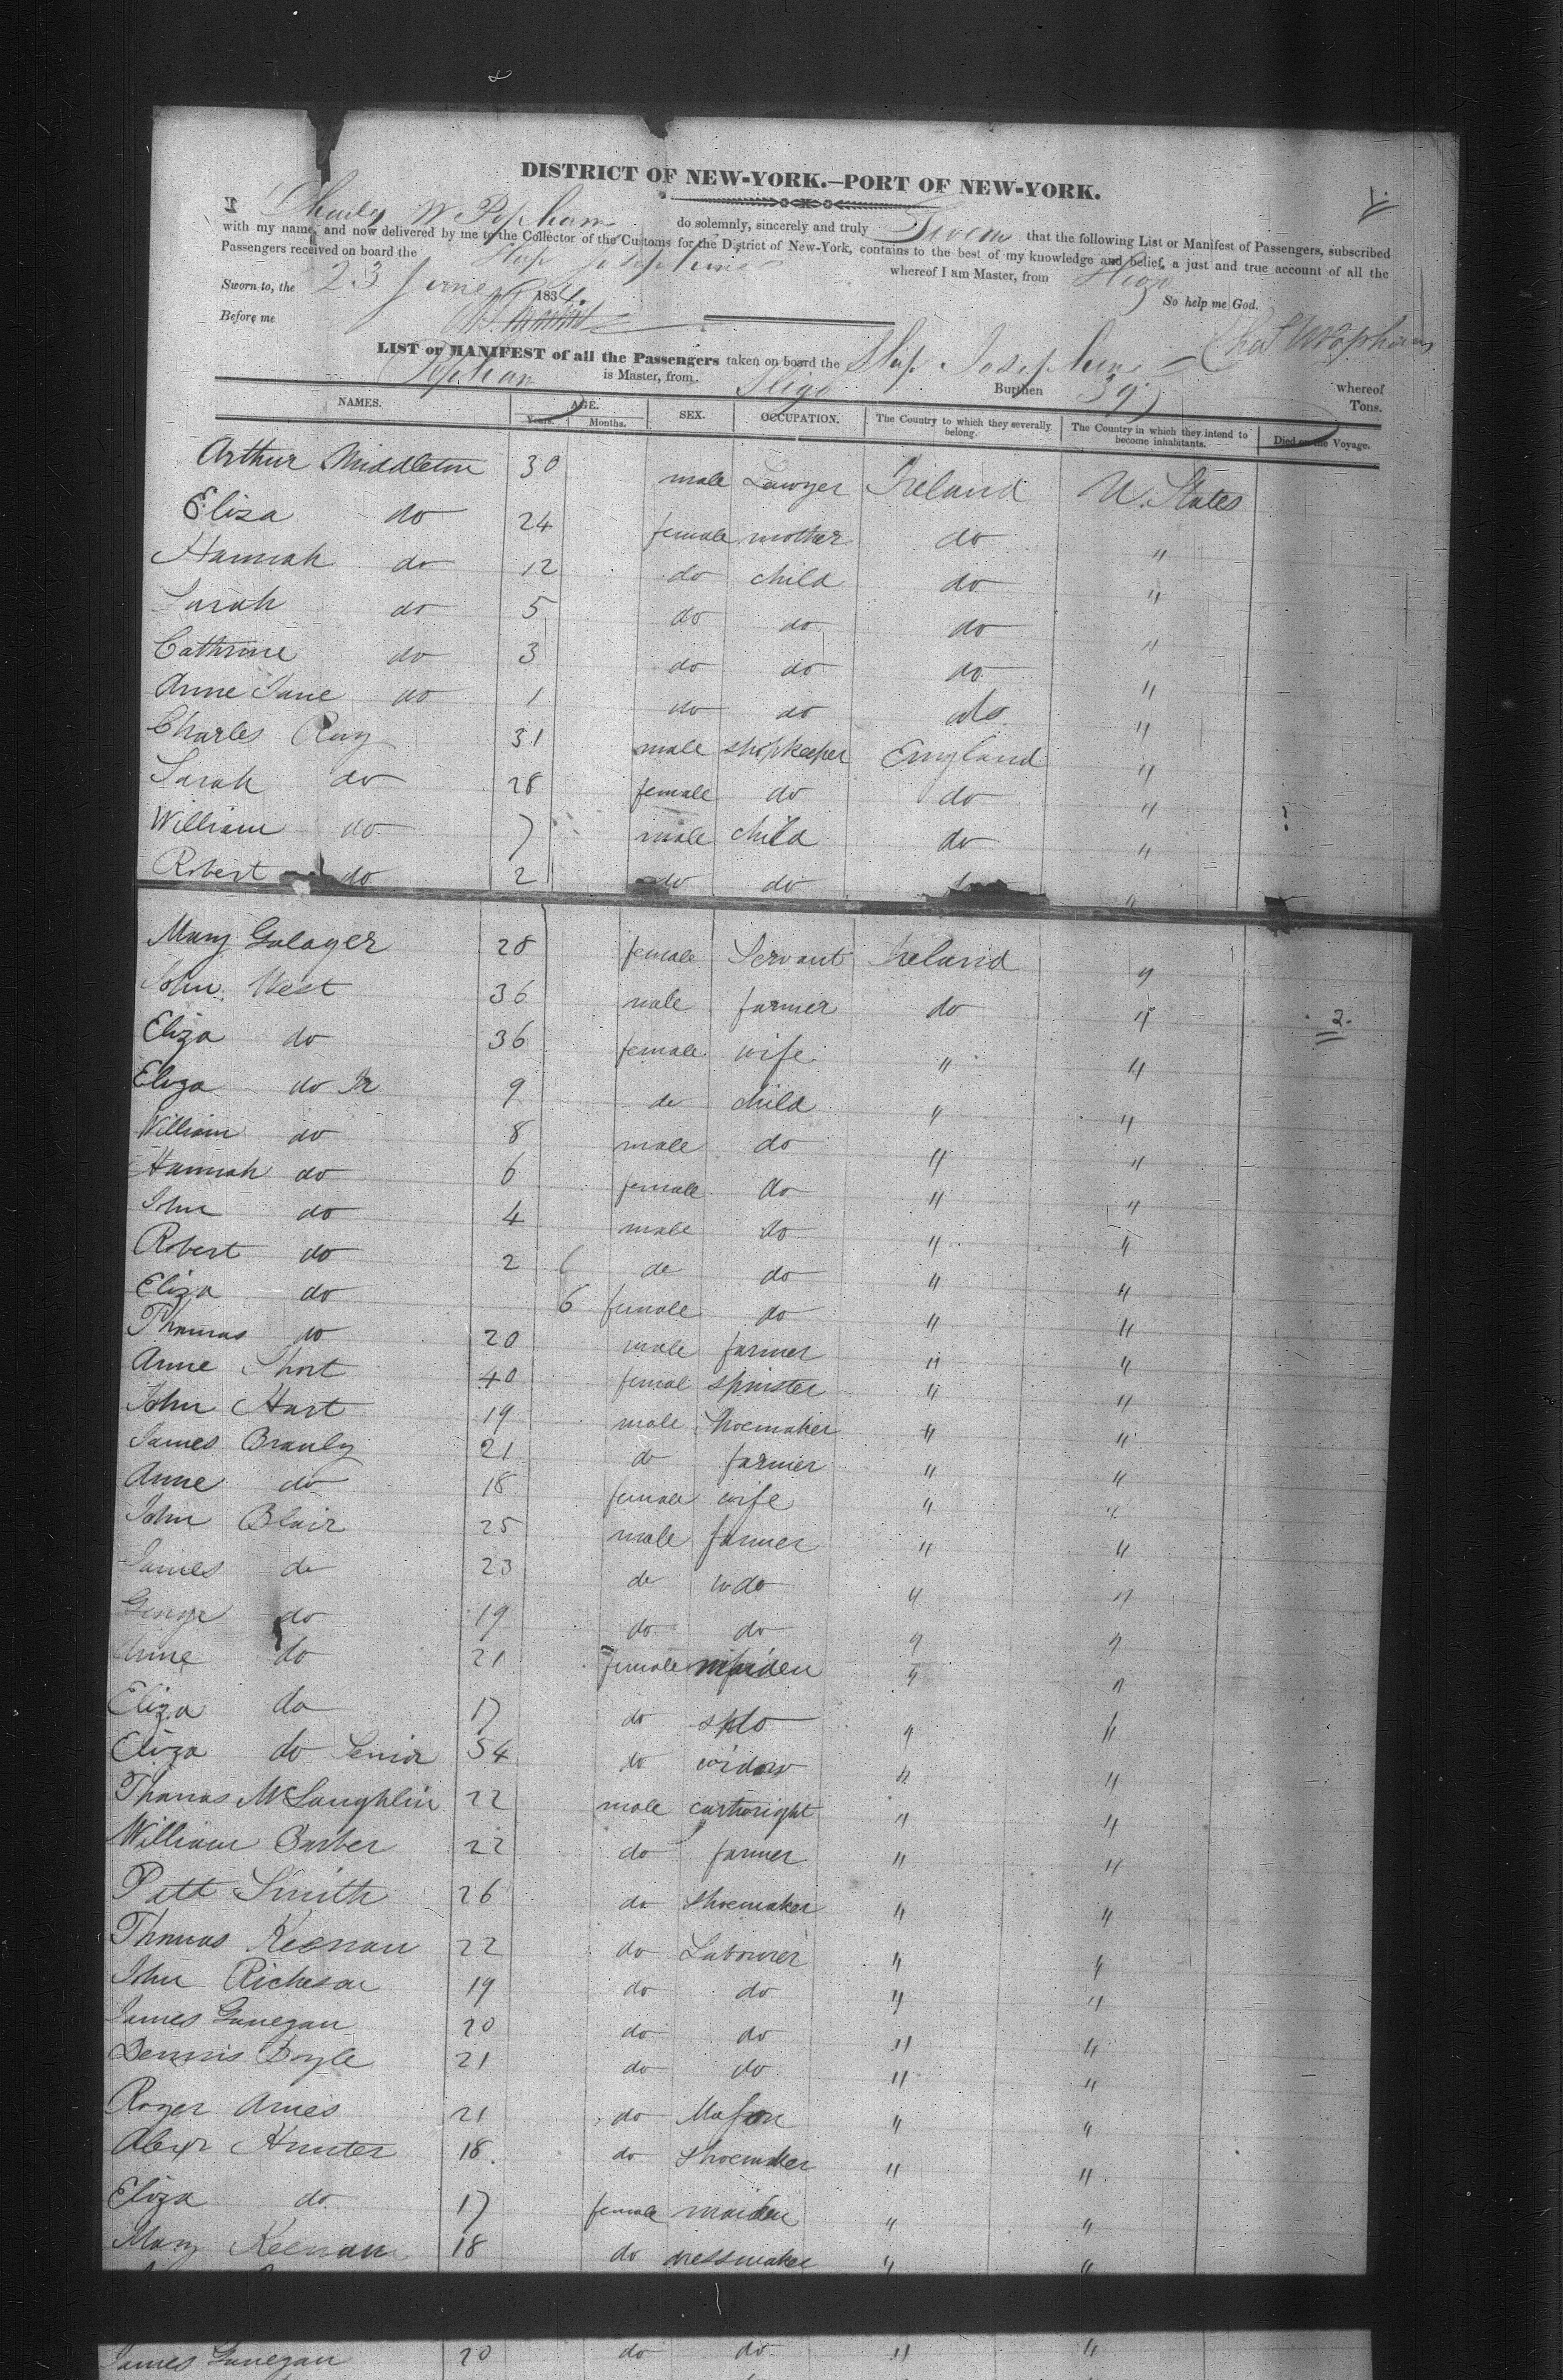 1.
DISTRICT OF NEW-YORK.—PORT OF NEW-YORK.
I Charles W Popham do solemnly, sincerely and truly Swear that the following List or Manifest of Passengers, subscribed
with my name, and now delivered by me to the Collector of the Customs for the District of New-York, contains to the best of my knowledge and belief, a just and true account of all the
Passengers received on board the Ship Josephine whereof I am Master, from Sligo
Sworn to, the 23 June 1834. So help me God.
Before me Chas W Popham
LIST or MANIFEST of all the Passengers taken on board the Ship Josephine whereof
Popham is Master, from Sligo Burthen 397 Tons.
NAMES. AGE. SEX. OCCUPATION. The Country to which they severally belong. The Country in which they intend to become inhabitants. Died on the Voyage.
Years. Months.
Arthur Middleton 30 male Lawyer Ireland U. States
Eliza do 24 female mother do "
Hannah do 12 do child do "
Sarah do 5 do do do "
Cathrine do 3 do do do "
Anne Jane do 1 do do do "
Charles Ray 31 male shopkeeper England "
Sarah do 28 female do do "
William do 7 male child do "
Robert do 2 do do "
Mary Galager 28 female Servant Ireland "
John West 36 male farmer do " 2.
Eliza do 36 female wife " "
Eliza do Jr 9 do child " "
William do 8 male do " "
Hannah do 6 female do " "
John do 4 male do " "
Robert do 2 6 do do " "
Eliza do 6 female do " "
Thomas do 20 male farmer " "
Anne Short 40 femal spinster " "
John Hart 19 male Shoemaker " "
James Branly 21 do farmer " "
Anne do 18 female wife " "
John Blair 25 male farmer " "
James do 23 do do " "
George do 19 do do " "
Anne do 21 female maiden " "
Eliza do 17 do do " "
Eliza do Senior 54 do widow " "
Thomas McLaughlin 22 male cartwright " "
William Barber 22 do farmer " "
Patt Smith 26 do Shoemaker " "
Thomas Keenan 22 do Labourer " "
John Richeson 19 do do " "
James Gunegan 20 do do " "
Dennis Boyle 21 do do " "
Roger Armes 21 do Mason " "
Alexr Hunter 18. do Shoemaker " "
Eliza do 17 female maiden " "
Mary Keenan 18 do dressmaker " "
James Gunegan 20 do do " "